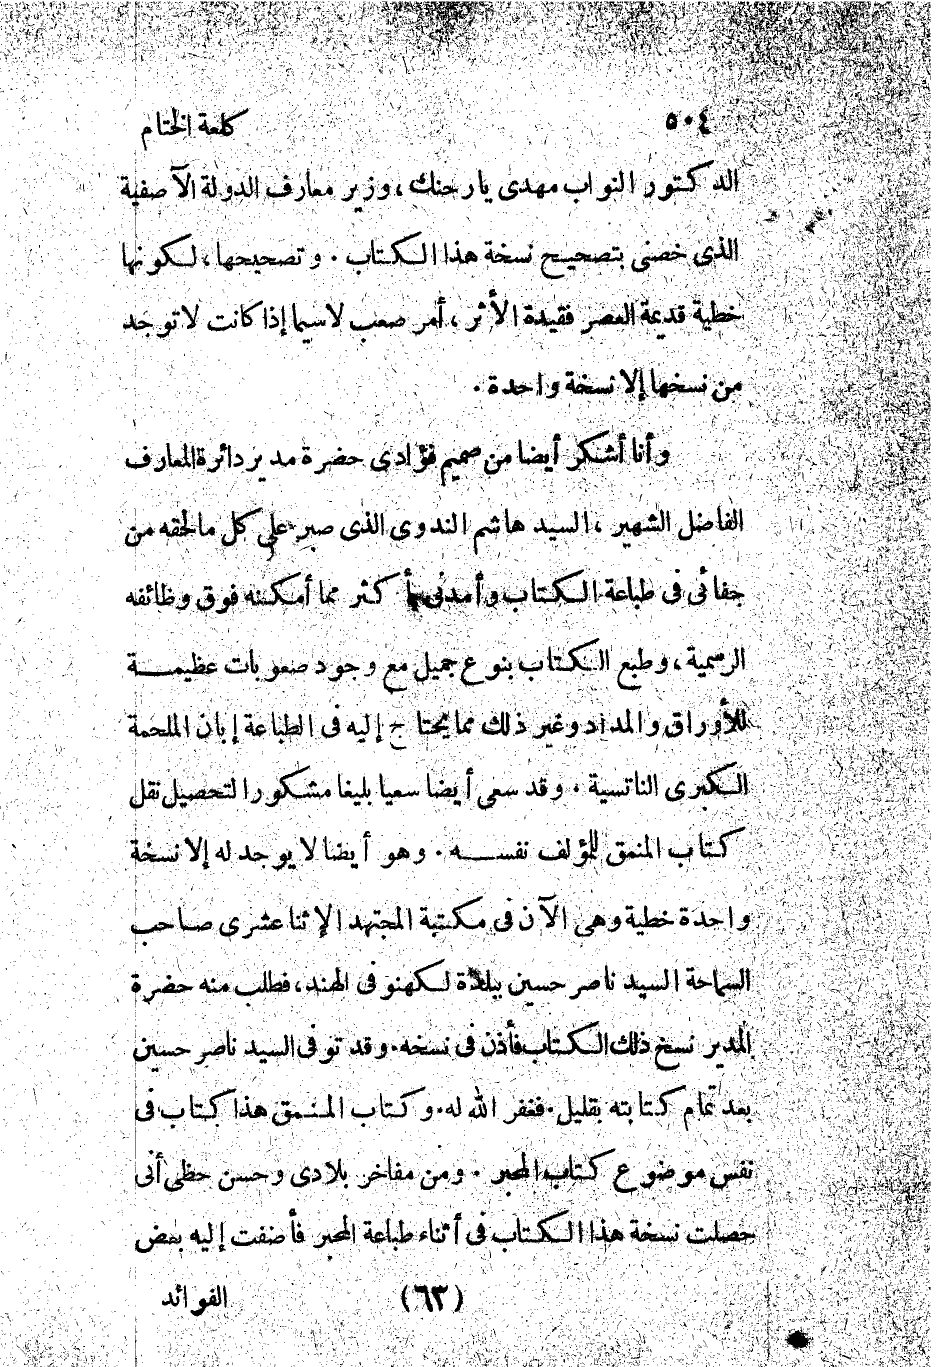 ٥٠٤ كلمة الختام
الدكتور النواب مهدى يار جنك، وزير معارف الدولة الآصفية
الذى خصنى بتصحيح نسخة هذا الكتاب. وتصحيحها، لكونها
خطية قديمة العصر فقيدة الأثر، أمر صعب لاسيما إذا كانت لا توجد
من نسخها إلا نسخة واحدة.
وأنا أشكر أيضا من صميم فؤادى حضرة مدير دائرة المعارف
الفاضل الشهير، السيد هاشم الندوى الذى صبر على كل مالحقه من
جفائى فى طباعة الكتاب وأمدنى بأكثر مما أمكنه فوق وظائفه
الرسمية، وطبع الكتاب بنوع جميل مع وجود صعوبات عظيمة
للأوراق والمداد وغير ذلك مما يحتاج إليه فى الطباعة إبان الملحمة
الكبرى الناتسية. وقد سعى أيضا سعيا بليغا مشكورا لتحصيل نقل
كتاب المنمق للمؤلف نفسه. وهو أيضا لا يوجد له إلا نسخة
واحدة خطية وهى الآن فى مكتبة المجتهد الإثنا عشرى صاحب
السماحة السيد ناصر حسين ببلدة لكهنو فى الهند، فطلب منه حضرة
المدير نسخ ذلك الكتاب فأذن فى نسخه. وقد توفى السيد ناصر حسين
بعد تمام كتابته بقليل. فغفر الله له. وكتاب المنمق هذا كتاب فى
نفس موضوع كتاب المحبر. ومن مفاخر بلادى وحسن حظى أنى
حصلت نسخة هذا الكتاب فى أثناء طباعة المحبر فأضفت إليه بعض
(٦٣) الفوائد